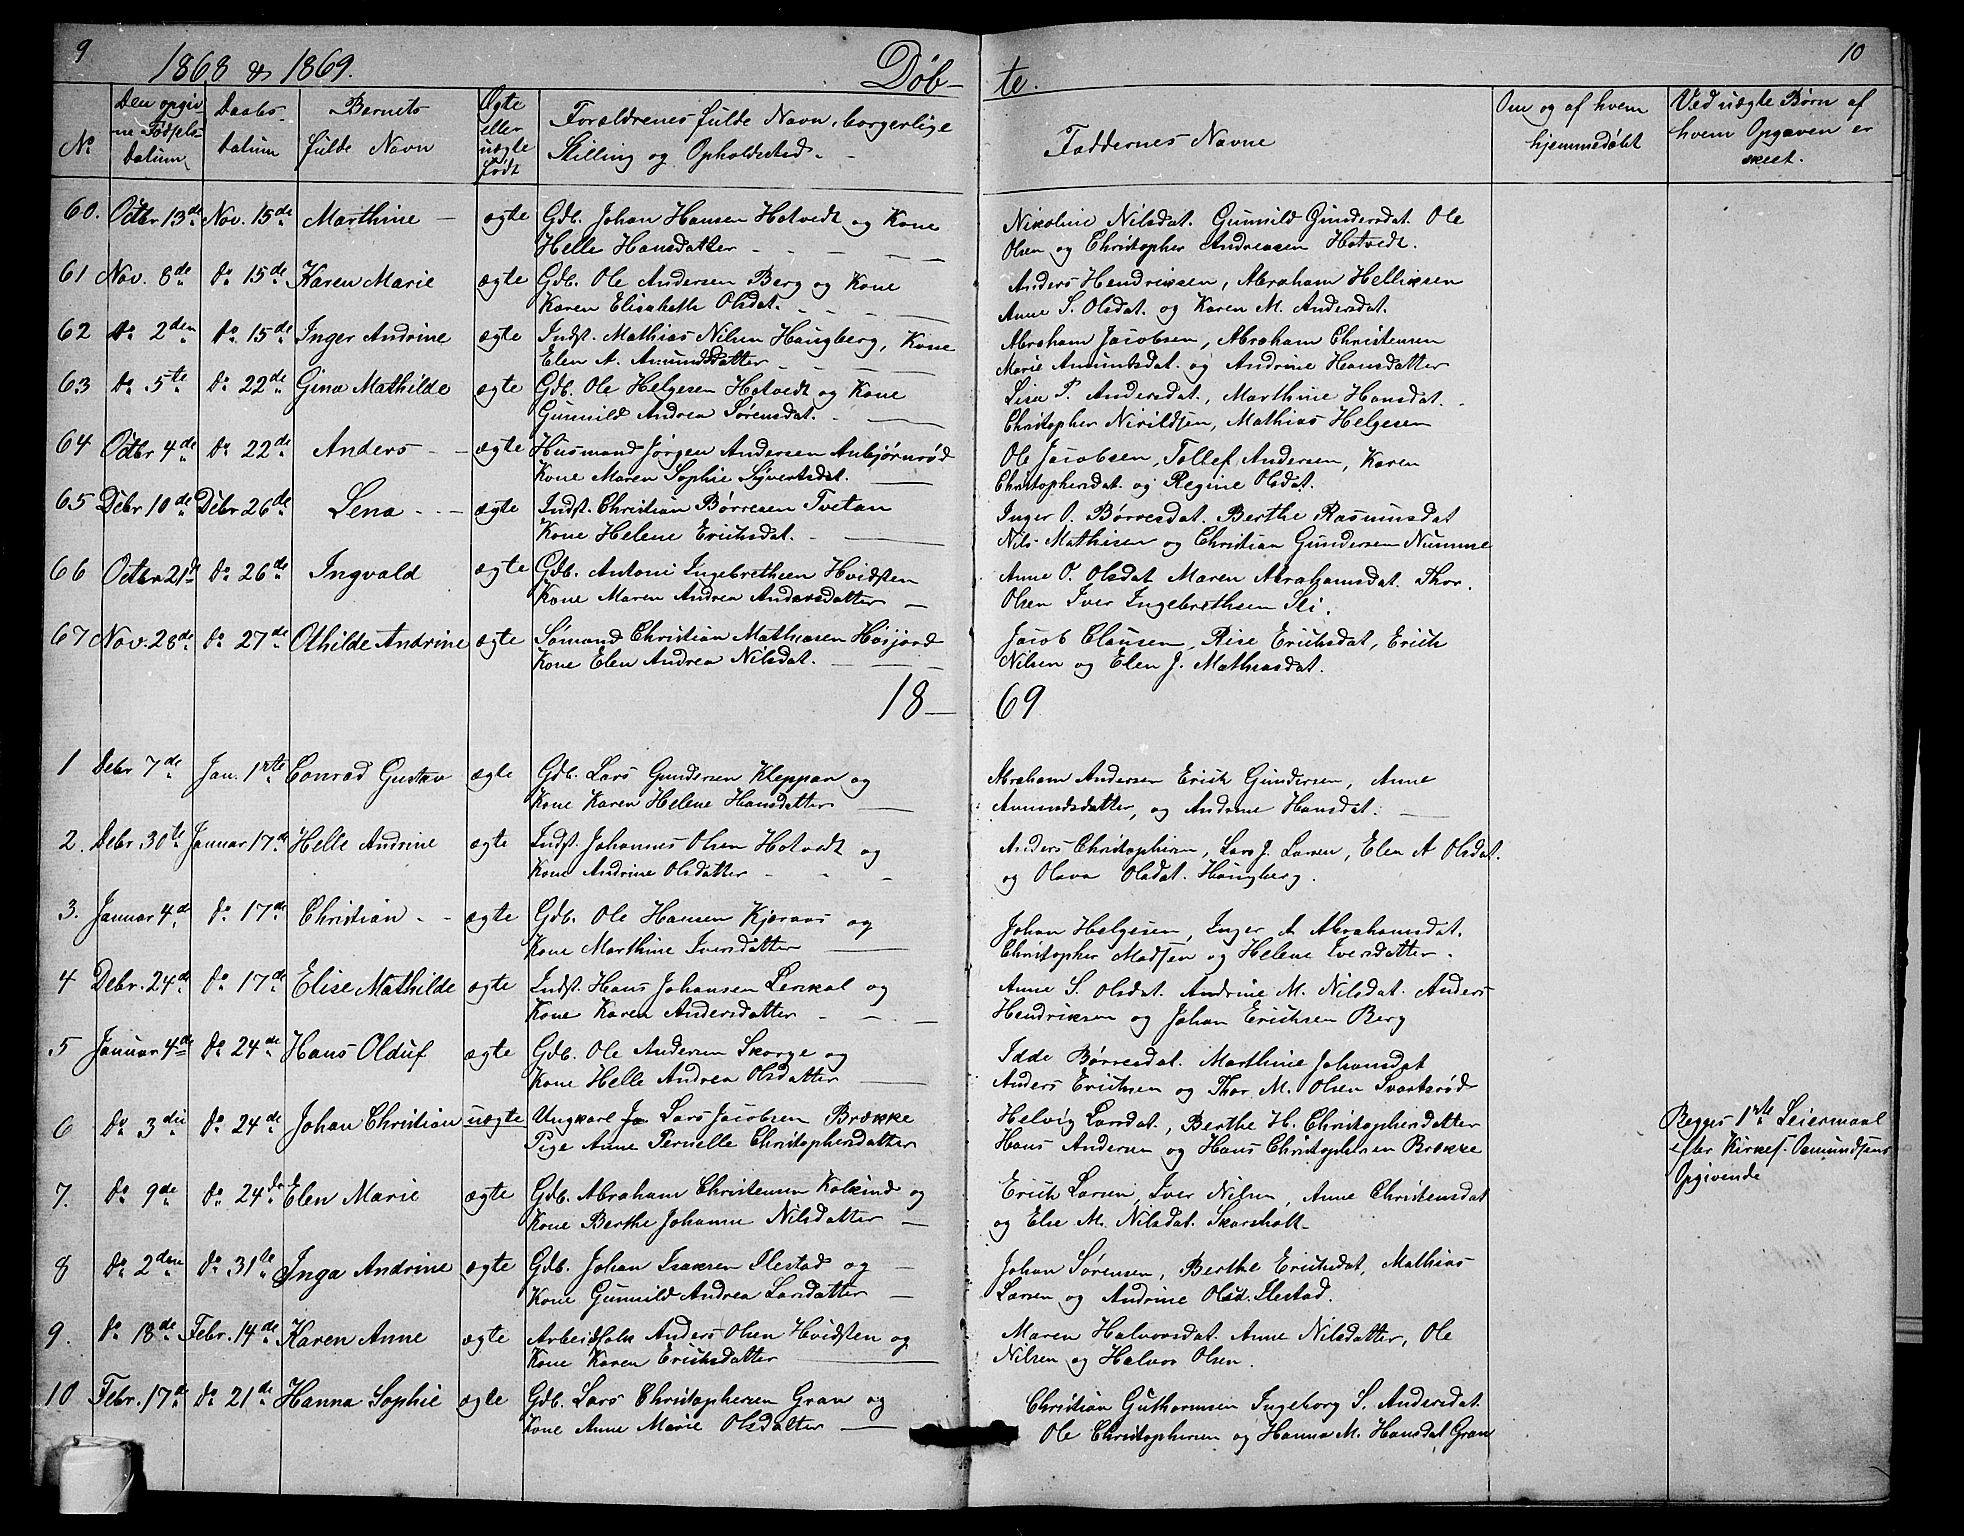 9
1868 & 1869.
Døb-
te.
10
No
Den opgiv
ne Fødsels-
datum
Daabs-
datum
Barnets
fulde Navn
Ægte
eller
uægte
født
Forældrenes fulde Navn, borgerlige
Stilling og Opholdssted.
Faddernes Navne
Om og af hvem
hjemmedøbt
Ved uægte Børn af
hvem Opgaven er
skeet.
60. Octbr 13de Nov. 15de Marthine ægte Gdb. Johan Hansen Hotvedt og Kone
Helle Hansdatter
Nikoline Nilsdat. Gunnild Gundersdat. Ole
Olsen og Christopher Andreasen Hotvedt.
61 Nov. 8de do 15de Karen Marie ægte Gdb. Ole Andersen Berg og Kone
Karen Elisabeth Olsdat.
Anders Hendriksen, Abraham Helliksen
Anne S. Olsdat. og Karen M. Andersdat.
62 do 2den do 15de Inger Andrine ægte Indst. Mathias Nilsen Haugberg, Kone
Elen A. Amundsdatter
Abraham Jacobsen, Abraham Christensen
Marie Amundsdat. og Andrine Hansdatter
63 do 5te do 22de Gina Mathilde ægte Gdb. Ole Helgesen Hotvedt og Kone
Gunnild Andrea Sørensdat.
Lisa P. Andersdat., Marthine Hansdat.
Christopher Nirildsen, Mathias Helgesen
64 Octbr 4de do 22de Anders ægte Husmand Jørgen Andersen Anbjørnrød
Kone Maren Sophie Syvertsdat.
Ole Jacobsen, Tollef Andersen, Karen
Christophersdat. og Regine Olsdat.
65 Debr 10de Debr 26de Lena ægte Indst. Christian Børresen Tvetan
Kone Helene Erichsdat.
Inger O. Børresdat. Berthe Rasmusdat
Nils Mathisen og Christian Gundersen Numme
66 Octbr 21de do 26de Ingvald ægte Gdb. Antoni Ingebrethsen Hvidsten
Kone Maren Andrea Andersdatter
Anne O. Olsdat Maren Abrahamsdat. Thor
Olsen Iver Ingebrethsen Sli.
67 Nov. 28de do 27de Othilde Andrine ægte Sømand Christian Mathiasen Høsjord
Kone Elen Andrea Nilsdat.
Jacob Clausen, Rise Erichsdat, Erich
Nilsen og Elen J. Mathiasdat.
18 — 69
1 Debr 7de Jan. 1ste Conrad Gustav ægte Gdb. Lars Gundersen Kleppan og
Kone Karen Helene Hansdatter
Abraham Andersen Erich Gundersen, Anne
Amundsdatter, og Andrine Hansdat.
2. Debr. 30te Januar 17de Helle Andrine ægte Indst. Johannes Olsen Hotvedt og
Kone Andrine Olsdatter
Anders Christophersen, Lars J. Larsen, Elen A Olsdat.
og Olava Olsdat. Haugberg.
3. Januar 4de do 17de Christian ægte Gdb. Ole Hansen Kjæraas og
Kone Marthine Iversdatter
Johan Helgesen, Inger A Abrahamsdat.
Christopher Madsen og Helene Iversdatter.
4 Debr. 24de do 17de Elise Mathilde ægte Indst. Hans Johansen Lerskal og
Kone Karen Andersdatter
Anne S. Olsdat. Andrine M. Nilsdat. Anders
Hendriksen og Johan Erichsen Berg
5 Januar 4de do 24de Hans Olduf ægte Gdb. Ole Andersen Skorge og
Kone Helle Andrea Olsdatter
Idde Børresdat. Marthine Johansdat
Anders Erichsen og Thor M. Olsen Svartsrød
6 do 3die do 24de Johan Christian uægte Ungkarl Ja Lars Jacobsen Brække
Pige Anne Pernelle Christophersdatter
Helvig Larsdat., Berthe H. Christophersdatter
Hans Andersen og Hans Christophersen Brække
Begges 1ste Leiermaal
efter Kirkes. Osmundsens
Opgivende
7. do 9de do 24de Elen Marie ægte Gdb. Abraham Christensen Kolkind og
Kone Berthe Johanne Nilsdatter
Erich Larsen, Iver Nilsen, Anne Christensdat
og Else M. Nilsdat. Skarsholt
8 do 2den do 31de Inga Andrine ægte Gdb. Johan Isaksen Ilestad og
Kone Gunnild Andrea Larsdatter
Johan Sørensen, Berthe Erichsdat, Mathias
Larsen og Andrine Olsd. Ilestad.
9. do 18de Febr. 14de Karen Anne ægte Arbeidsfolk Anders Olsen Hvidsten og
Kone Karen Erichsdatter
Maren Halvorsdat. Anne Nilsdatter, Ole
Nilsen og Halvor Olsen.
10 Febr. 17de do 21de Hanna Sophie ægte Gdb. Lars Christophersen Gran og
Kone Anne Marie Olsdatter
Christian Guthormsen Ingeborg S. Andersdat.
Ole Christophersen og Hanna M. Hansdat Gran